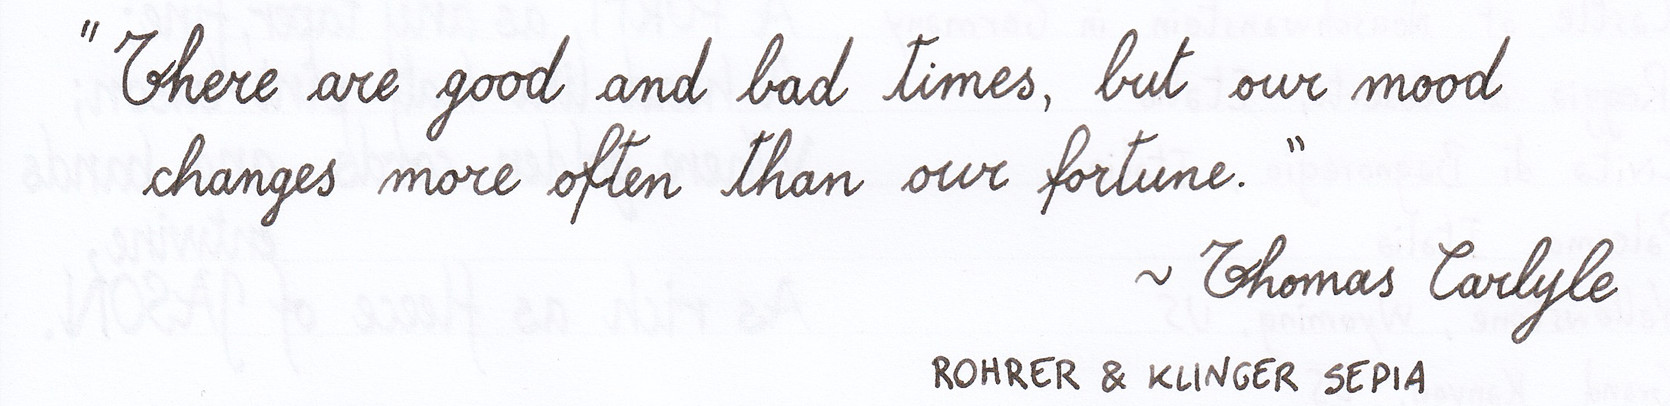 "There are good and bad times, but our mood
changes more often than our fortune."
~ Thomas Carlyle
ROHRER & KLINGER SEPIA